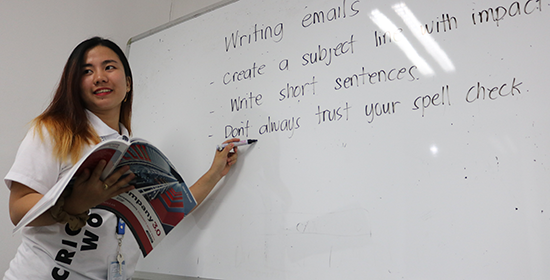 Writing emails
- Create a subject line with impact.
- Write short sentences.
- Don't always trust your spell check.
company 3.0
CRIC
WO